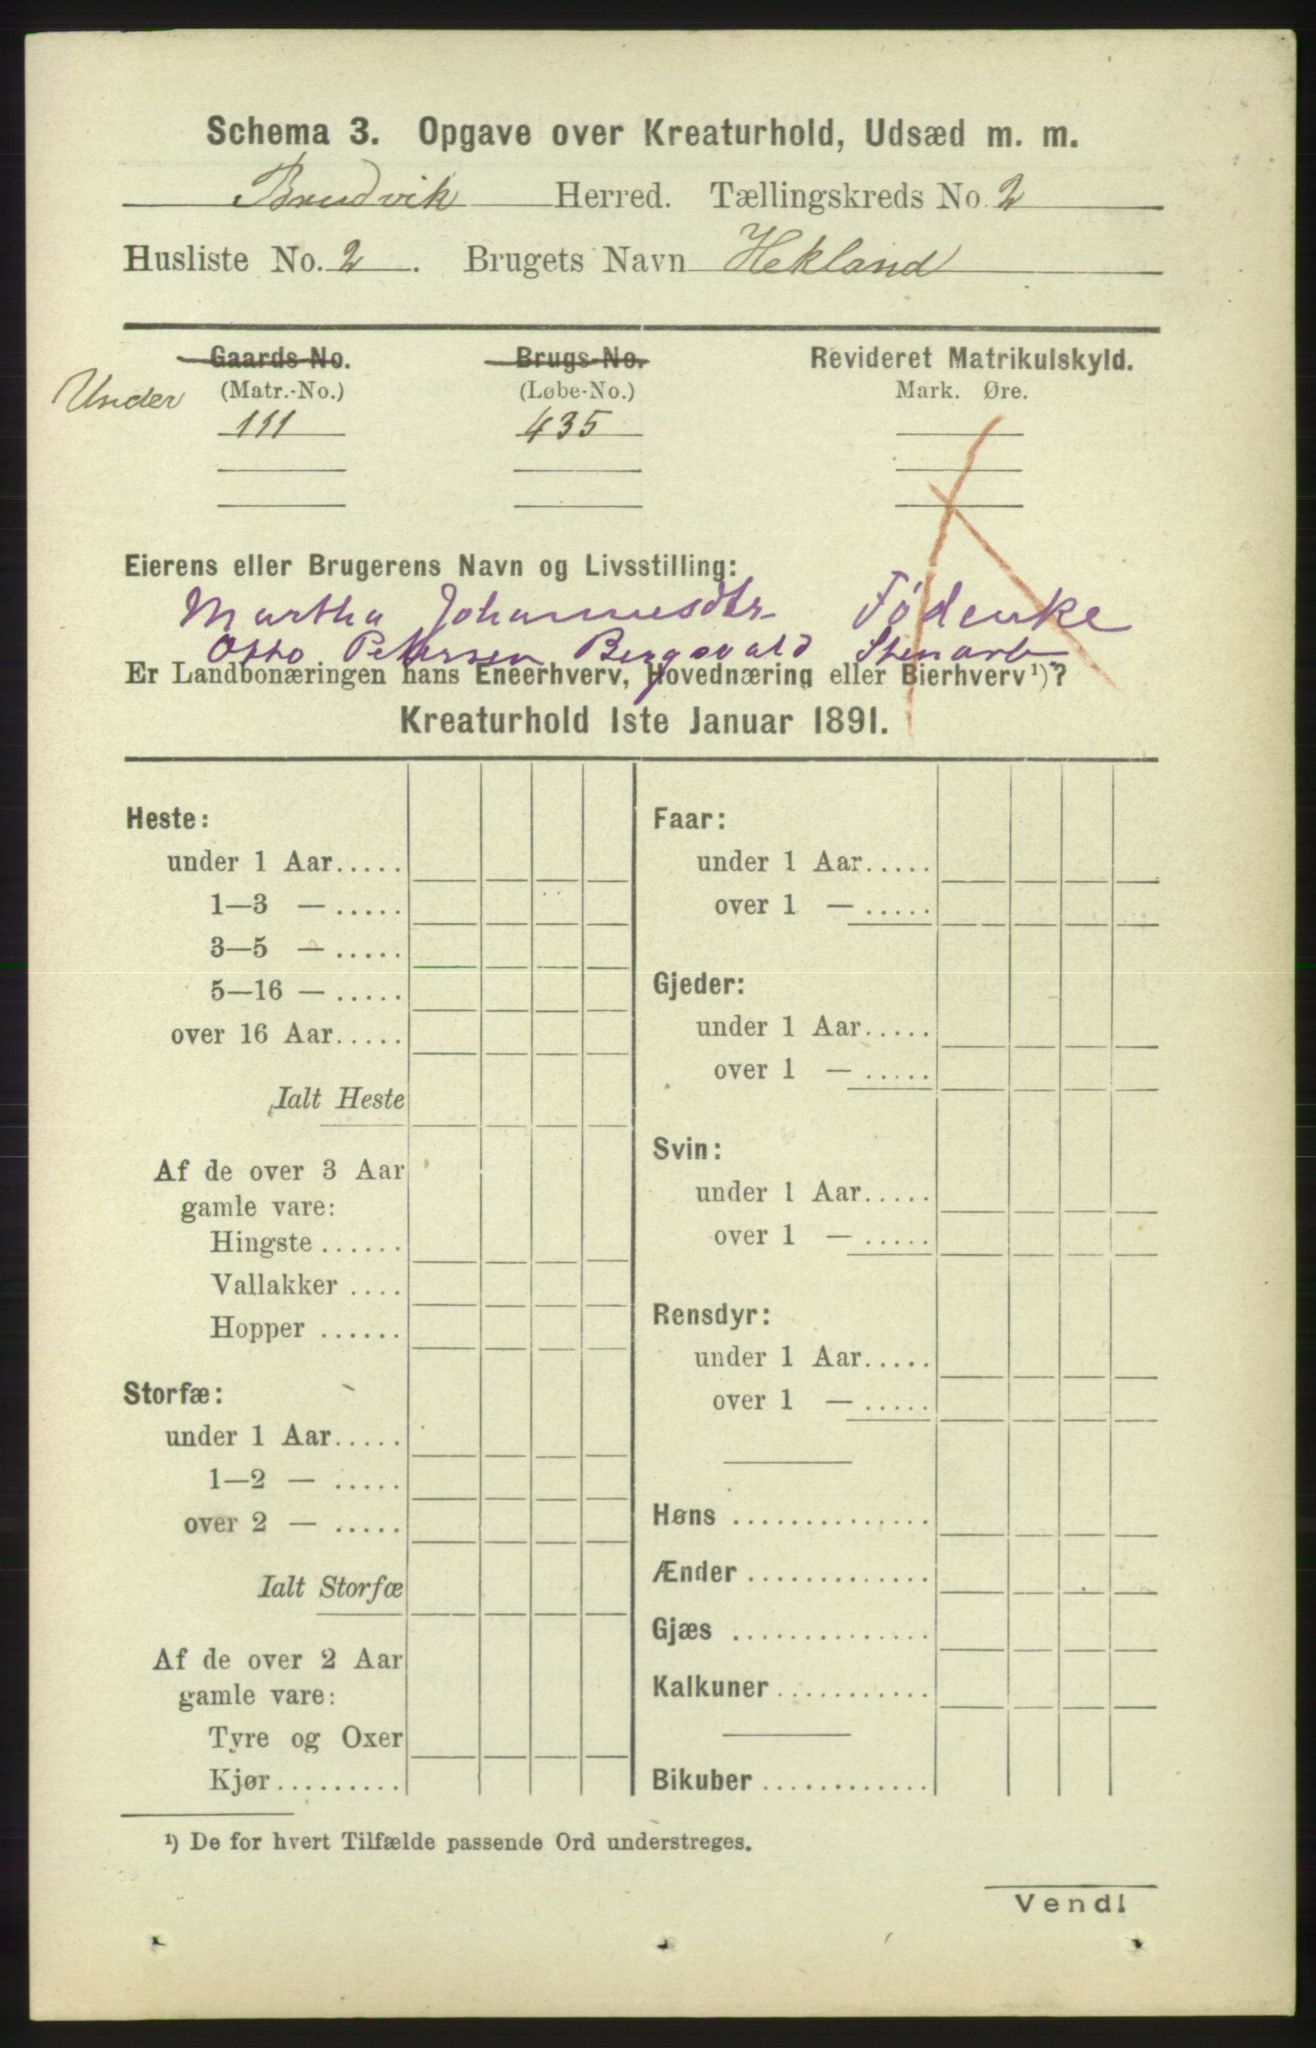 Schema 3. Opgave over Kreaturhold, Udsæd m. m.
Brudvik Herred. Tællingskreds No. 2
Husliste No. 2. Brugets Navn Hekland
Gaards-No. Brugs-No. Revideret Matrikulskyld.
Under (Matr.-No.) (Løbe-No.) Mark. Øre.
111 435
Eierens eller Brugerens Navn og Livsstilling:
Martha Johannesdtr Fødenke
Otto Petersen Bergsvald Stenarb
Er Landbonæringen hans Eneerhverv, Hovednæring eller Bierhverv¹)?
Kreaturhold 1ste Januar 1891.
Heste:
under 1 Aar.....
1—3 — .....
3—5 — .....
5—16 — .....
over 16 Aar.....
Ialt Heste
Af de over 3 Aar
gamle vare:
Hingste ......
Vallakker ....
Hopper ......
Storfæ:
under 1 Aar.....
1—2 — .....
over 2 — .....
Ialt Storfæ
Af de over 2 Aar
gamle vare:
Tyre og Oxer
Kjør.........
Faar:
under 1 Aar.....
over 1 — .....
Gjeder:
under 1 Aar.....
over 1 — .....
Svin:
under 1 Aar.....
over 1 — .....
Rensdyr:
under 1 Aar.....
over 1 — .....
Høns ..............
Ænder .............
Gjæs ..............
Kalkuner...........
Bikuber ............
¹) De for hvert Tilfælde passende Ord understreges.
Vend!